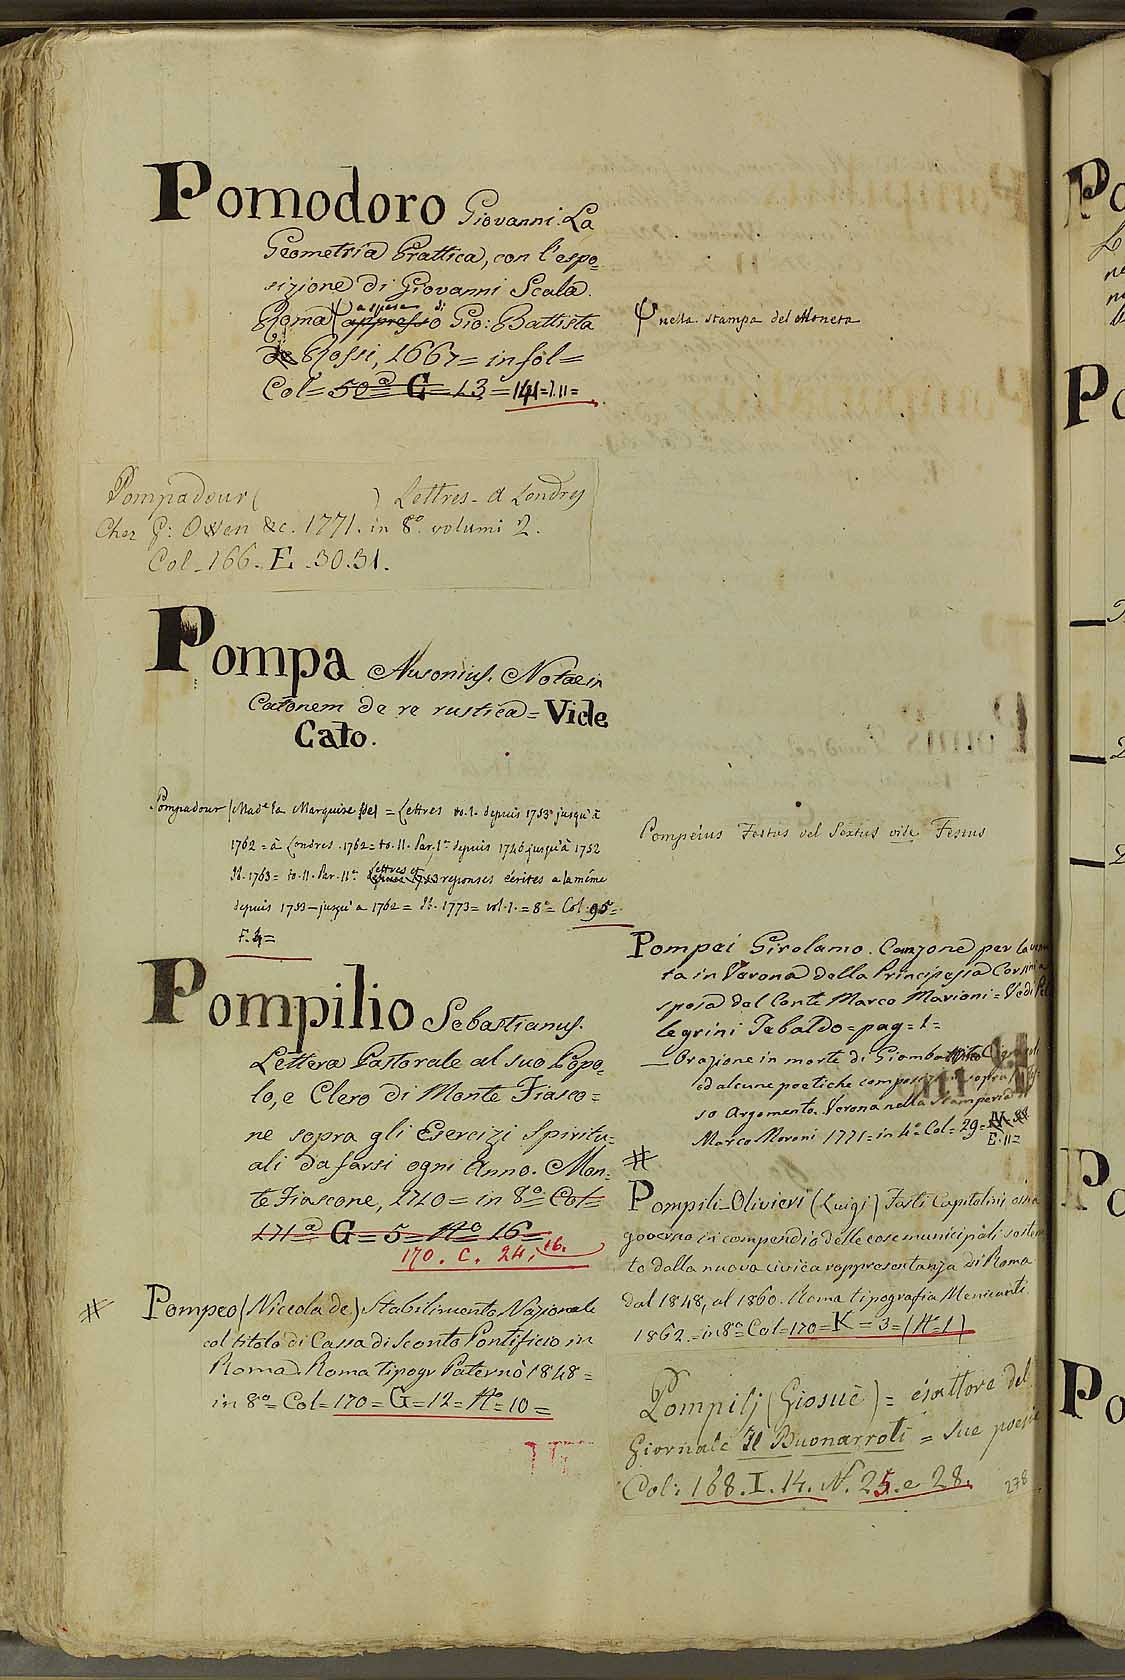 Pomodoro Giovanni. La
Geometria Prattica, con l'espo=
sizione di Giovanni Scala.
Roma a spese di appresso Gio: Battista
de Rossi, 1667= in fol=
Col= 50ª G= 13 = 141=I.11=
nella stampa del Moneta
Pompadour ( ) Lettres - A Londres
Chez G: Owen &c. 1771. in 8º volumi 2.
Col. 166. E. 30.31.
Pompa Ausonius. Notae in
Catonem de re rustica = Vide
Cato.
Pompadour (Madᵉ la Marquise de) = Lettres to. I. depuis 1753 jusqu'à
1762 = à Londres. 1762= to. II. Par. Iᵉ depuis 1746 jusqu'à 1752
Id. 1763= to. II. Par. IIª Lettres et reponses écrites a la même
depuis 1753 - jusqu'a 1762 = Id. 1773= vol. I. = 8º= Col. 95=
F. 4=
Pompeius Festus vel Sextus vide Festus
Pompei Girolamo. Canzone per la venu
ta in Verona della Principessa Corsini a
sposa del Conte Marco Marioni= Vedi Pel
legrini Tebaldo= pag= 1=
— Orazione in morte di Giamba
ed alcune poetiche sopra
so Argomento. Verona nella Stamperia
Marco Moroni 1771= in 4º Col= 29=
E. 11=
Pompilio Sebastianus.
Lettera Pastorale al suo Popo=
lo, e Clero di Monte Fiasco=
ne sopra gli Esercizj Spiritu=
ali da farsi ogni Anno. Mon=
te Fiascone, 1740= in 8º= Col=
171ª G= 5= Nº 16=
170. C. 24. 16.
#
Pompili-Olivieri (Luigi) Fasti Capitolini ossia
governo in compendio delle cose municipali sosten
to dalla nuova civica rappresentanza di Roma
dal 1848, al 1860. Roma tipografia Menicanti
1862= in 8º= Col= 170= K= 3= (Nº 1)
# Pompeo (Niccola de) Stabilimento Nazionale
col titolo di Cassa di Sconto Pontificio in
Roma. Roma tipogr Paternò 1848=
in 8º= Col= 170= G= 12= Nº 10=
Pompilj (Giosuè) = esattore del
Giornale Il Buonarroti = sue poesie
Col: 168. I. 14. N. 25. e 28.
278